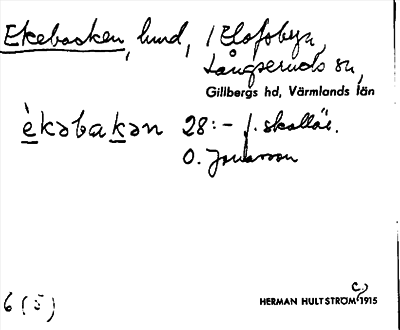 Ekebacken, lund, / Elofsbyn,
Långseruds sn,
Gillbergs hd, Värmlands län
èkəbakən 28:- f. skollär.
O. Jonasson
6 (5)
C.
HERMAN HULTSTRÖM, 1915